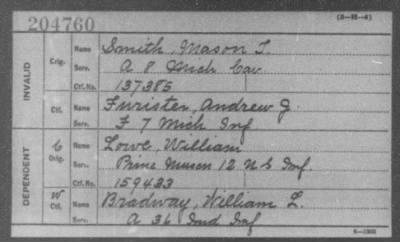 204760
(3-88-6)
INVALID
Orig.
Name Smith, Mason T.
Serv. A 8 Mich Cav
Ctf. No. 137385
Ctf.
Name Furister, Andrew J.
Serv. F 7 Mich Inf
DEPENDENT
C
Orig.
Name Lowe, William
Serv. Prine Musen 12 U S Inf.
Ctf. No. 159433
W
Ctf.
Name Bradway, William L.
Serv. A 36 Ind Inf